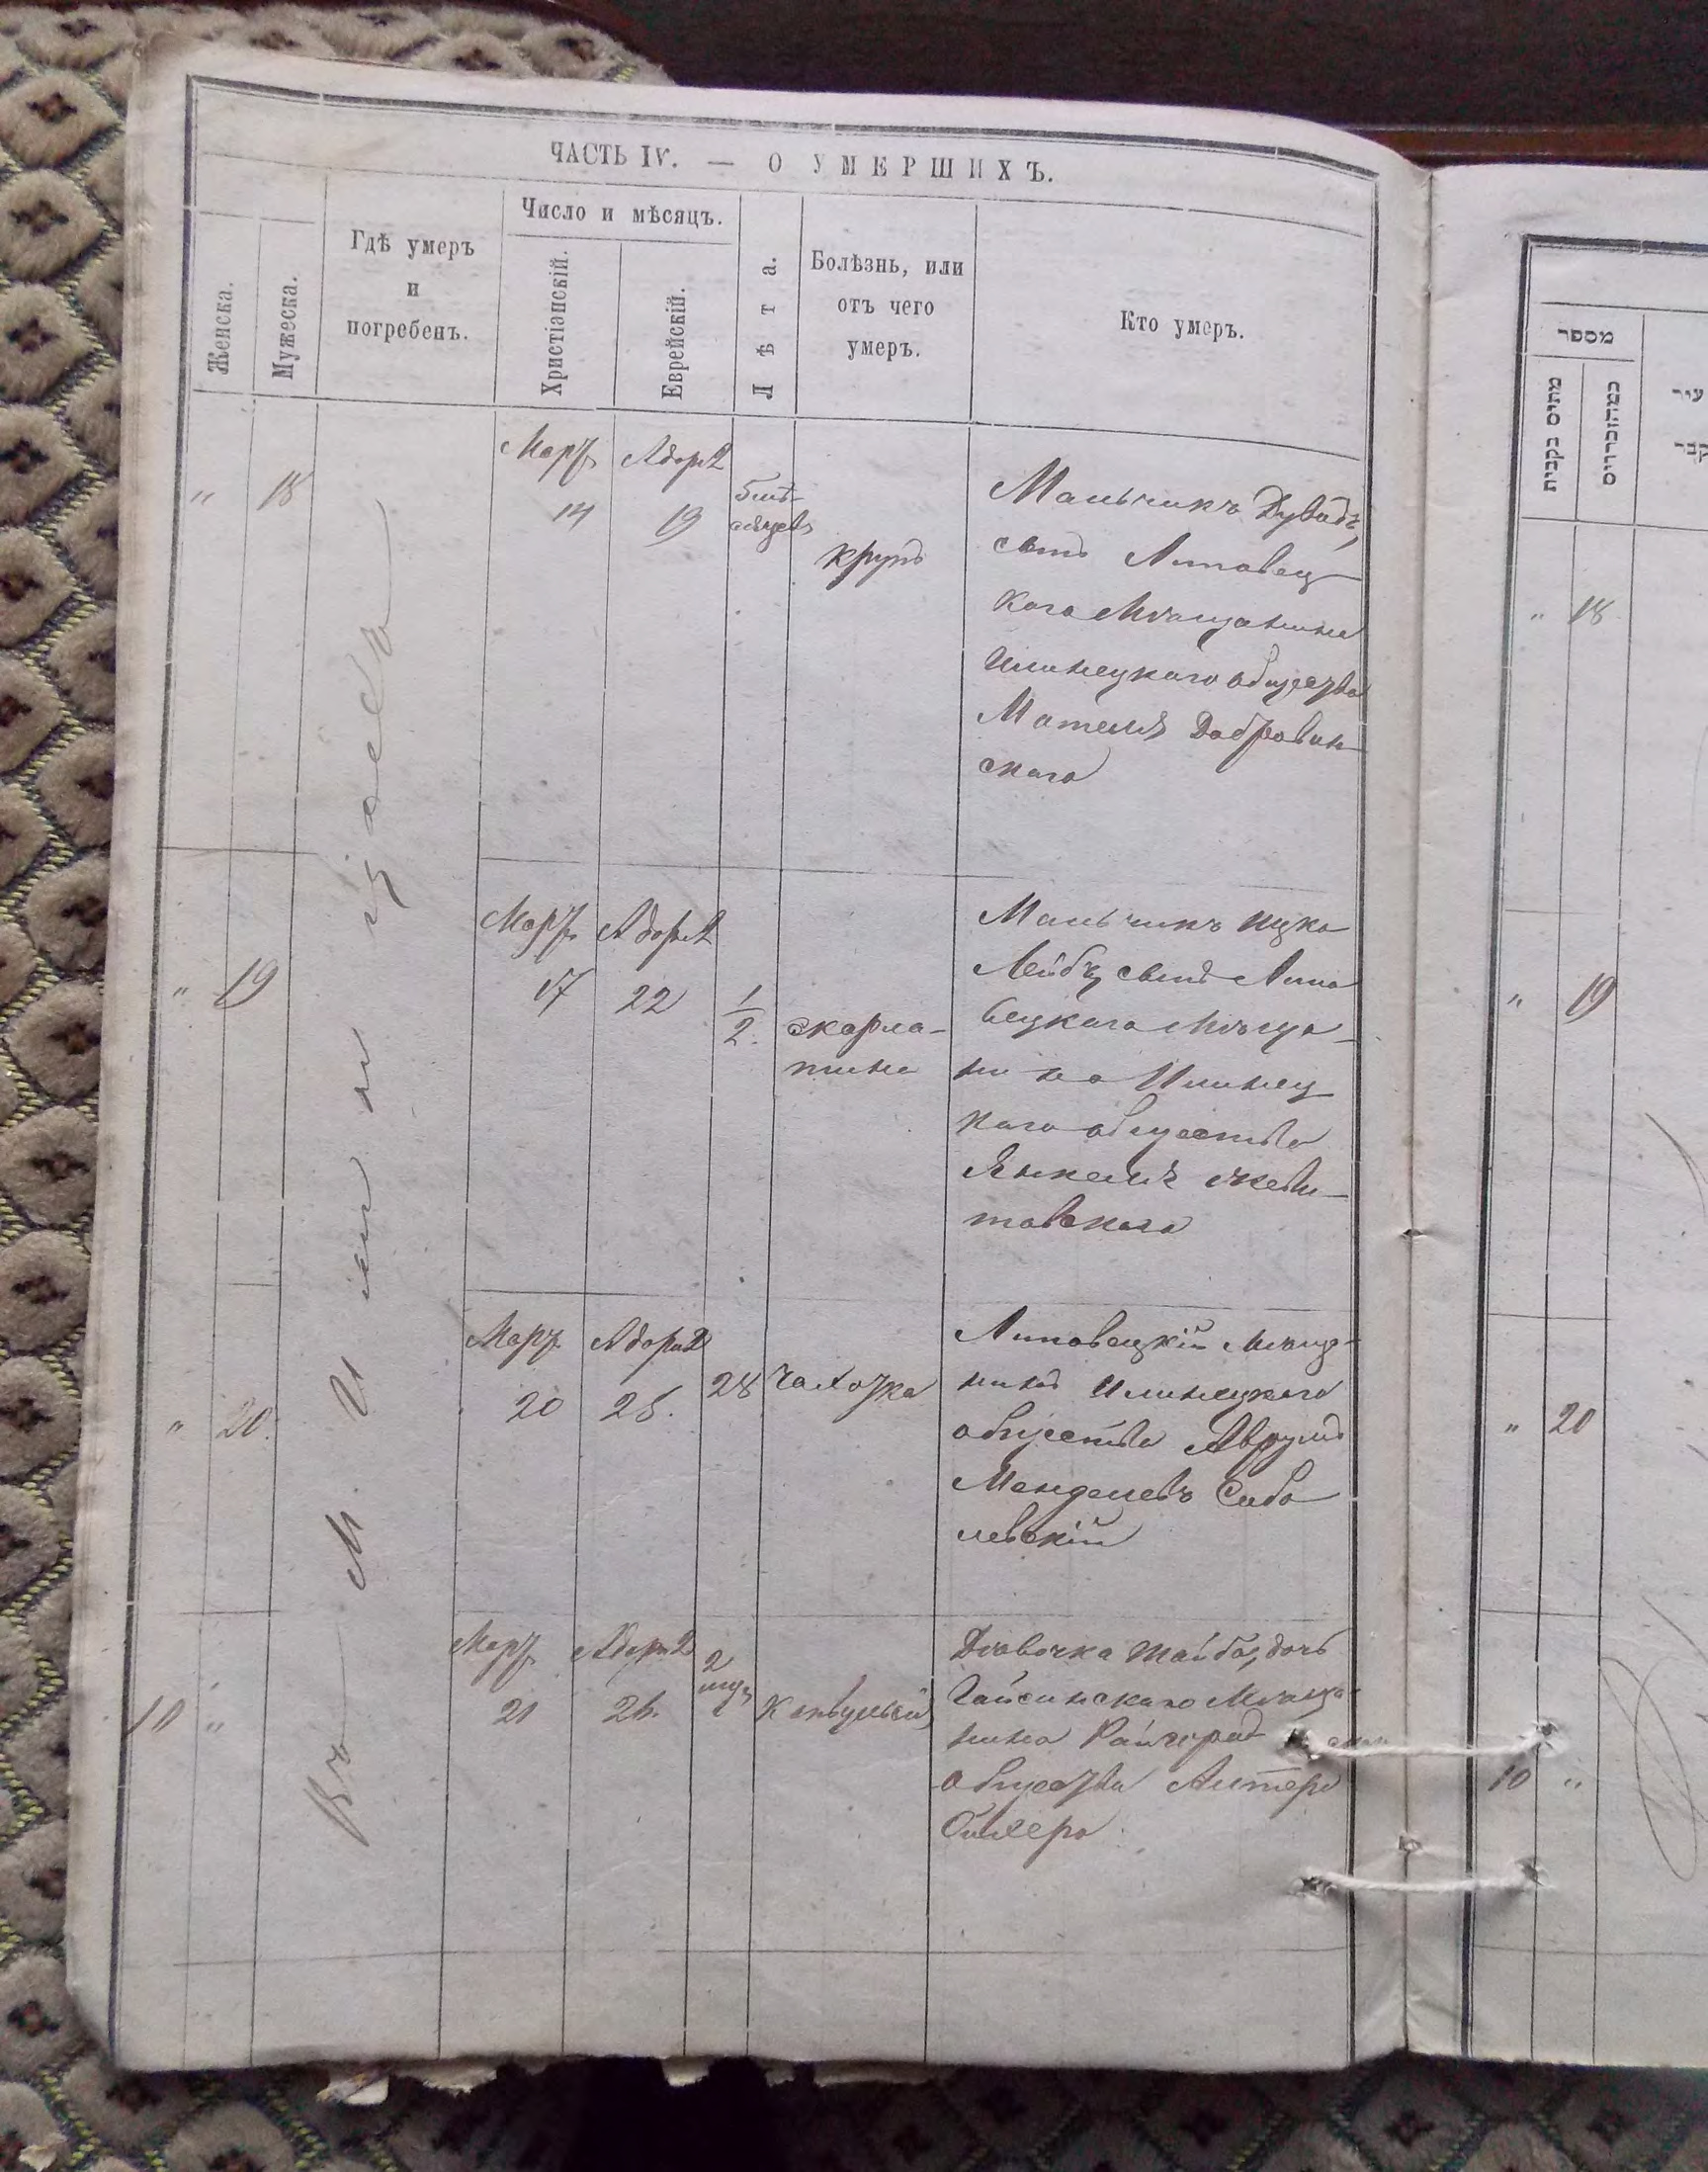 ЧАСТЬ IV. — О УМЕРШИХЪ.
Женска.
Мужеска.
Гдѣ умеръ
и
погребенъ.
Число и мѣсяцъ.
Христіанскій.
Еврейскій.
Лѣта.
Болѣзнь, или
отъ чего
умеръ.
Кто умеръ.
Въ М. Илинцахъ
" 18
Март
14
Адора 2
19
крупъ
Мальчикъ Дувидъ,
сынъ Липовец
кого Мѣщанина
Илинецкого общества
Мотеля Добровин
ского
" 19
Март
17
Адора 2
22
1/2
скарла-
тина
Мальчикъ Ицко
Лейбъ, сынъ Липо
вецкого Мѣща-
нина Илинец
кого общества
Янкеля
товского
" 20.
Март
20
Адора 2
25.
28
чахотка
Липовецкій Мѣща-
нинъ Илинецкого
общества Аврумъ
Менделевъ Собо
левскій
10 "
Март
21
Адора 2
26.
2
Дѣвочка Тайба, дочь
Гайсинского Мѣща-
нина Райгород
общества Альтера
מספר
מתים נקבות
" 18
" 19
" 20
10 "